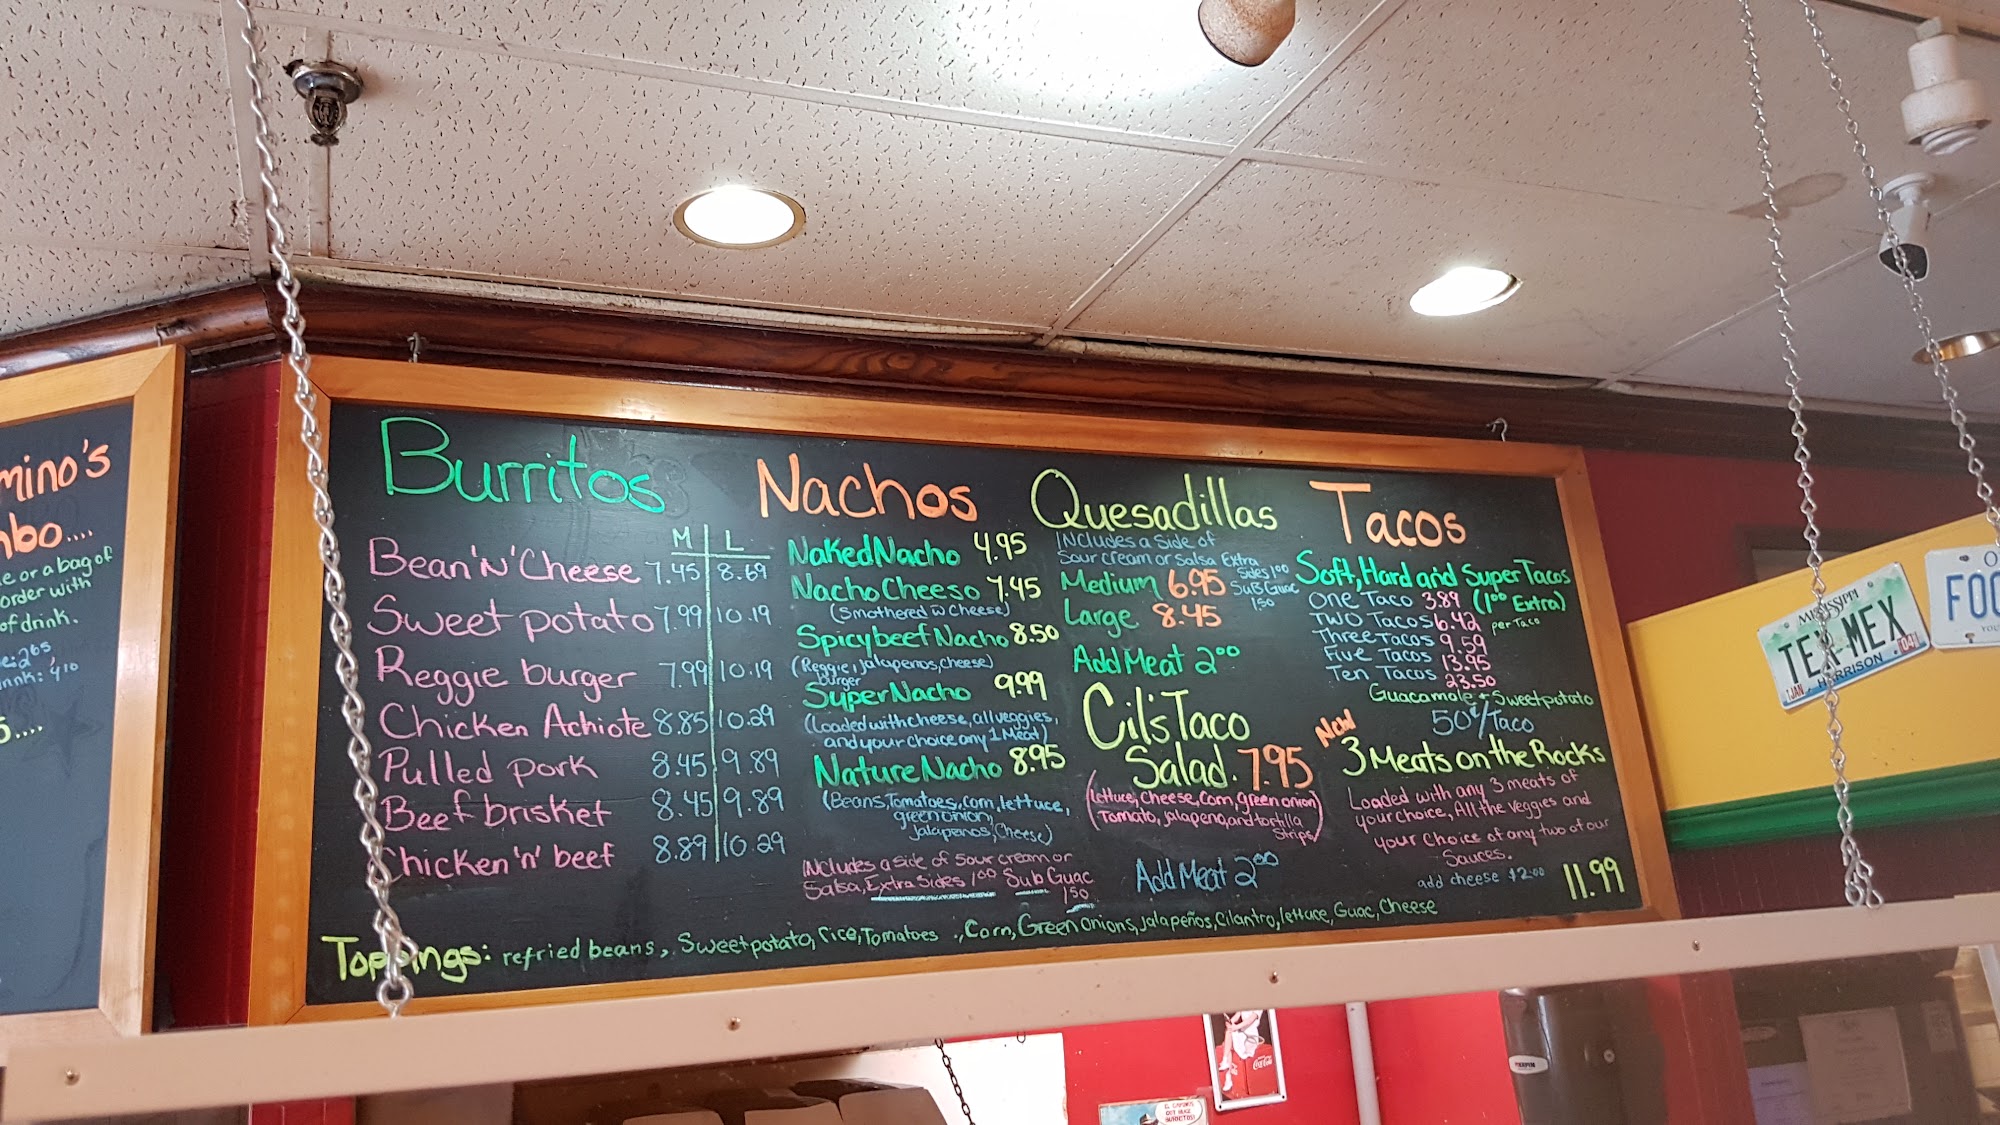 mino's
mbo....
e or a bag of
order with
of drink.
Burritos
M L
Bean 'N' Cheese 7.45 8.69
Sweet potato 7.99 10.19
Reggie burger 7.99 10.19
Chicken Achiote 8.85 10.29
Pulled pork 8.45 9.89
Beef brisket 8.45 9.89
Chicken 'n' beef 8.89 10.29
Nachos
Naked Nacho 4.95
Nacho Cheeso 7.45
(Smothered w Cheese)
Spicy beef Nacho 8.50
(Reggie, jalapenos, cheese)
burger
Super Nacho 9.99
(Loaded with cheese, all veggies,
and your choice any 1 Meat)
Nature Nacho 8.95
(Beans, Tomatoes, corn, lettuce,
green onion,
jalapenos, Cheese)
INcludes a side of sour cream or
Salsa, Extra Sides 1.00 Sub Guac
1.50
Quesadillas
INcludes a side of
Sour cream or Salsa Extra
Sides 1.00
Medium 6.95 Sub Guac
1.50
Large 8.45
Add Meat 2.00
Cil's Taco
Salad. 7.95
(lettuce, cheese, corn, green onion
Tomato, jalapeno, and tortilla
Strips)
Add Meat 2.00
Tacos
Soft, Hard and Super Tacos
One Taco 3.89 (1.00 Extra)
per Taco
Two Tacos 6.42
Three Tacos 9.59
Five Tacos 13.95
Ten Tacos 23.50
Guacamole + Sweet potato
50¢/Taco
New
3 Meats on the Rocks
Loaded with any 3 meats of
your choice, All the veggies and
your choice of any two of our
Sauces.
add cheese $2.00 11.99
Toppings: refried beans, Sweet potato, rice, Tomatoes ., Corn, Green onions, jalapeños, Cilantro, lettuce, Guac, Cheese
MISSISSIPPI
TEX MEX
JAN HARRISON 04
FOO
Coca-Cola